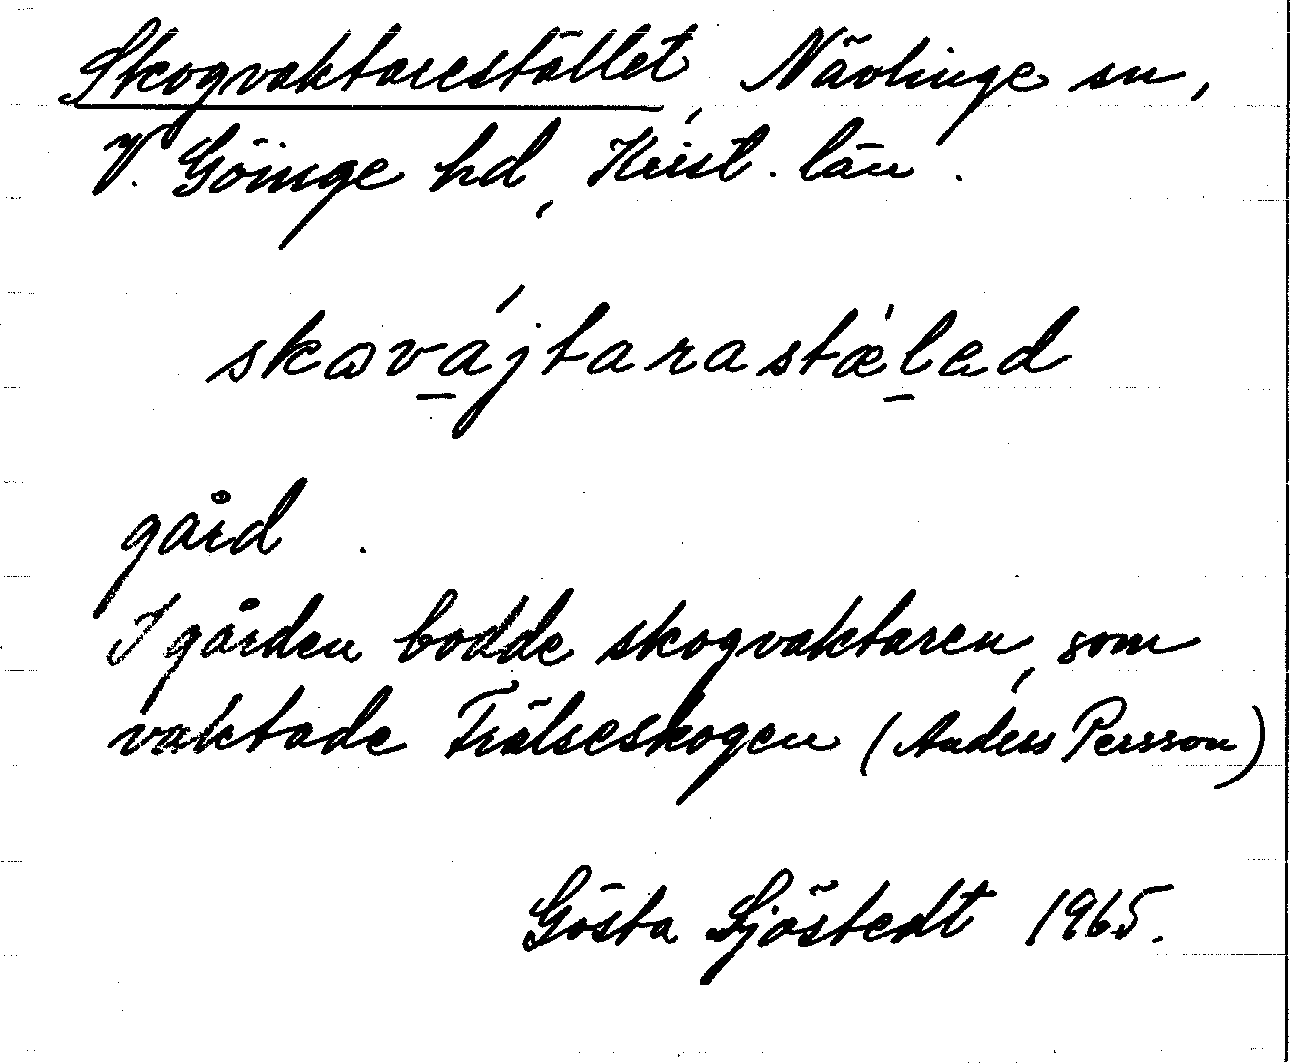 Skogvaktarestället, Nävlinge sn,
V. Göinge hd, Krist. län.
skωvájtarastǽled
gård.
I gården bodde skogvaktaren, som
vaktade Frälseskogen (Anders Persson)
Gösta Sjöstedt 1965.